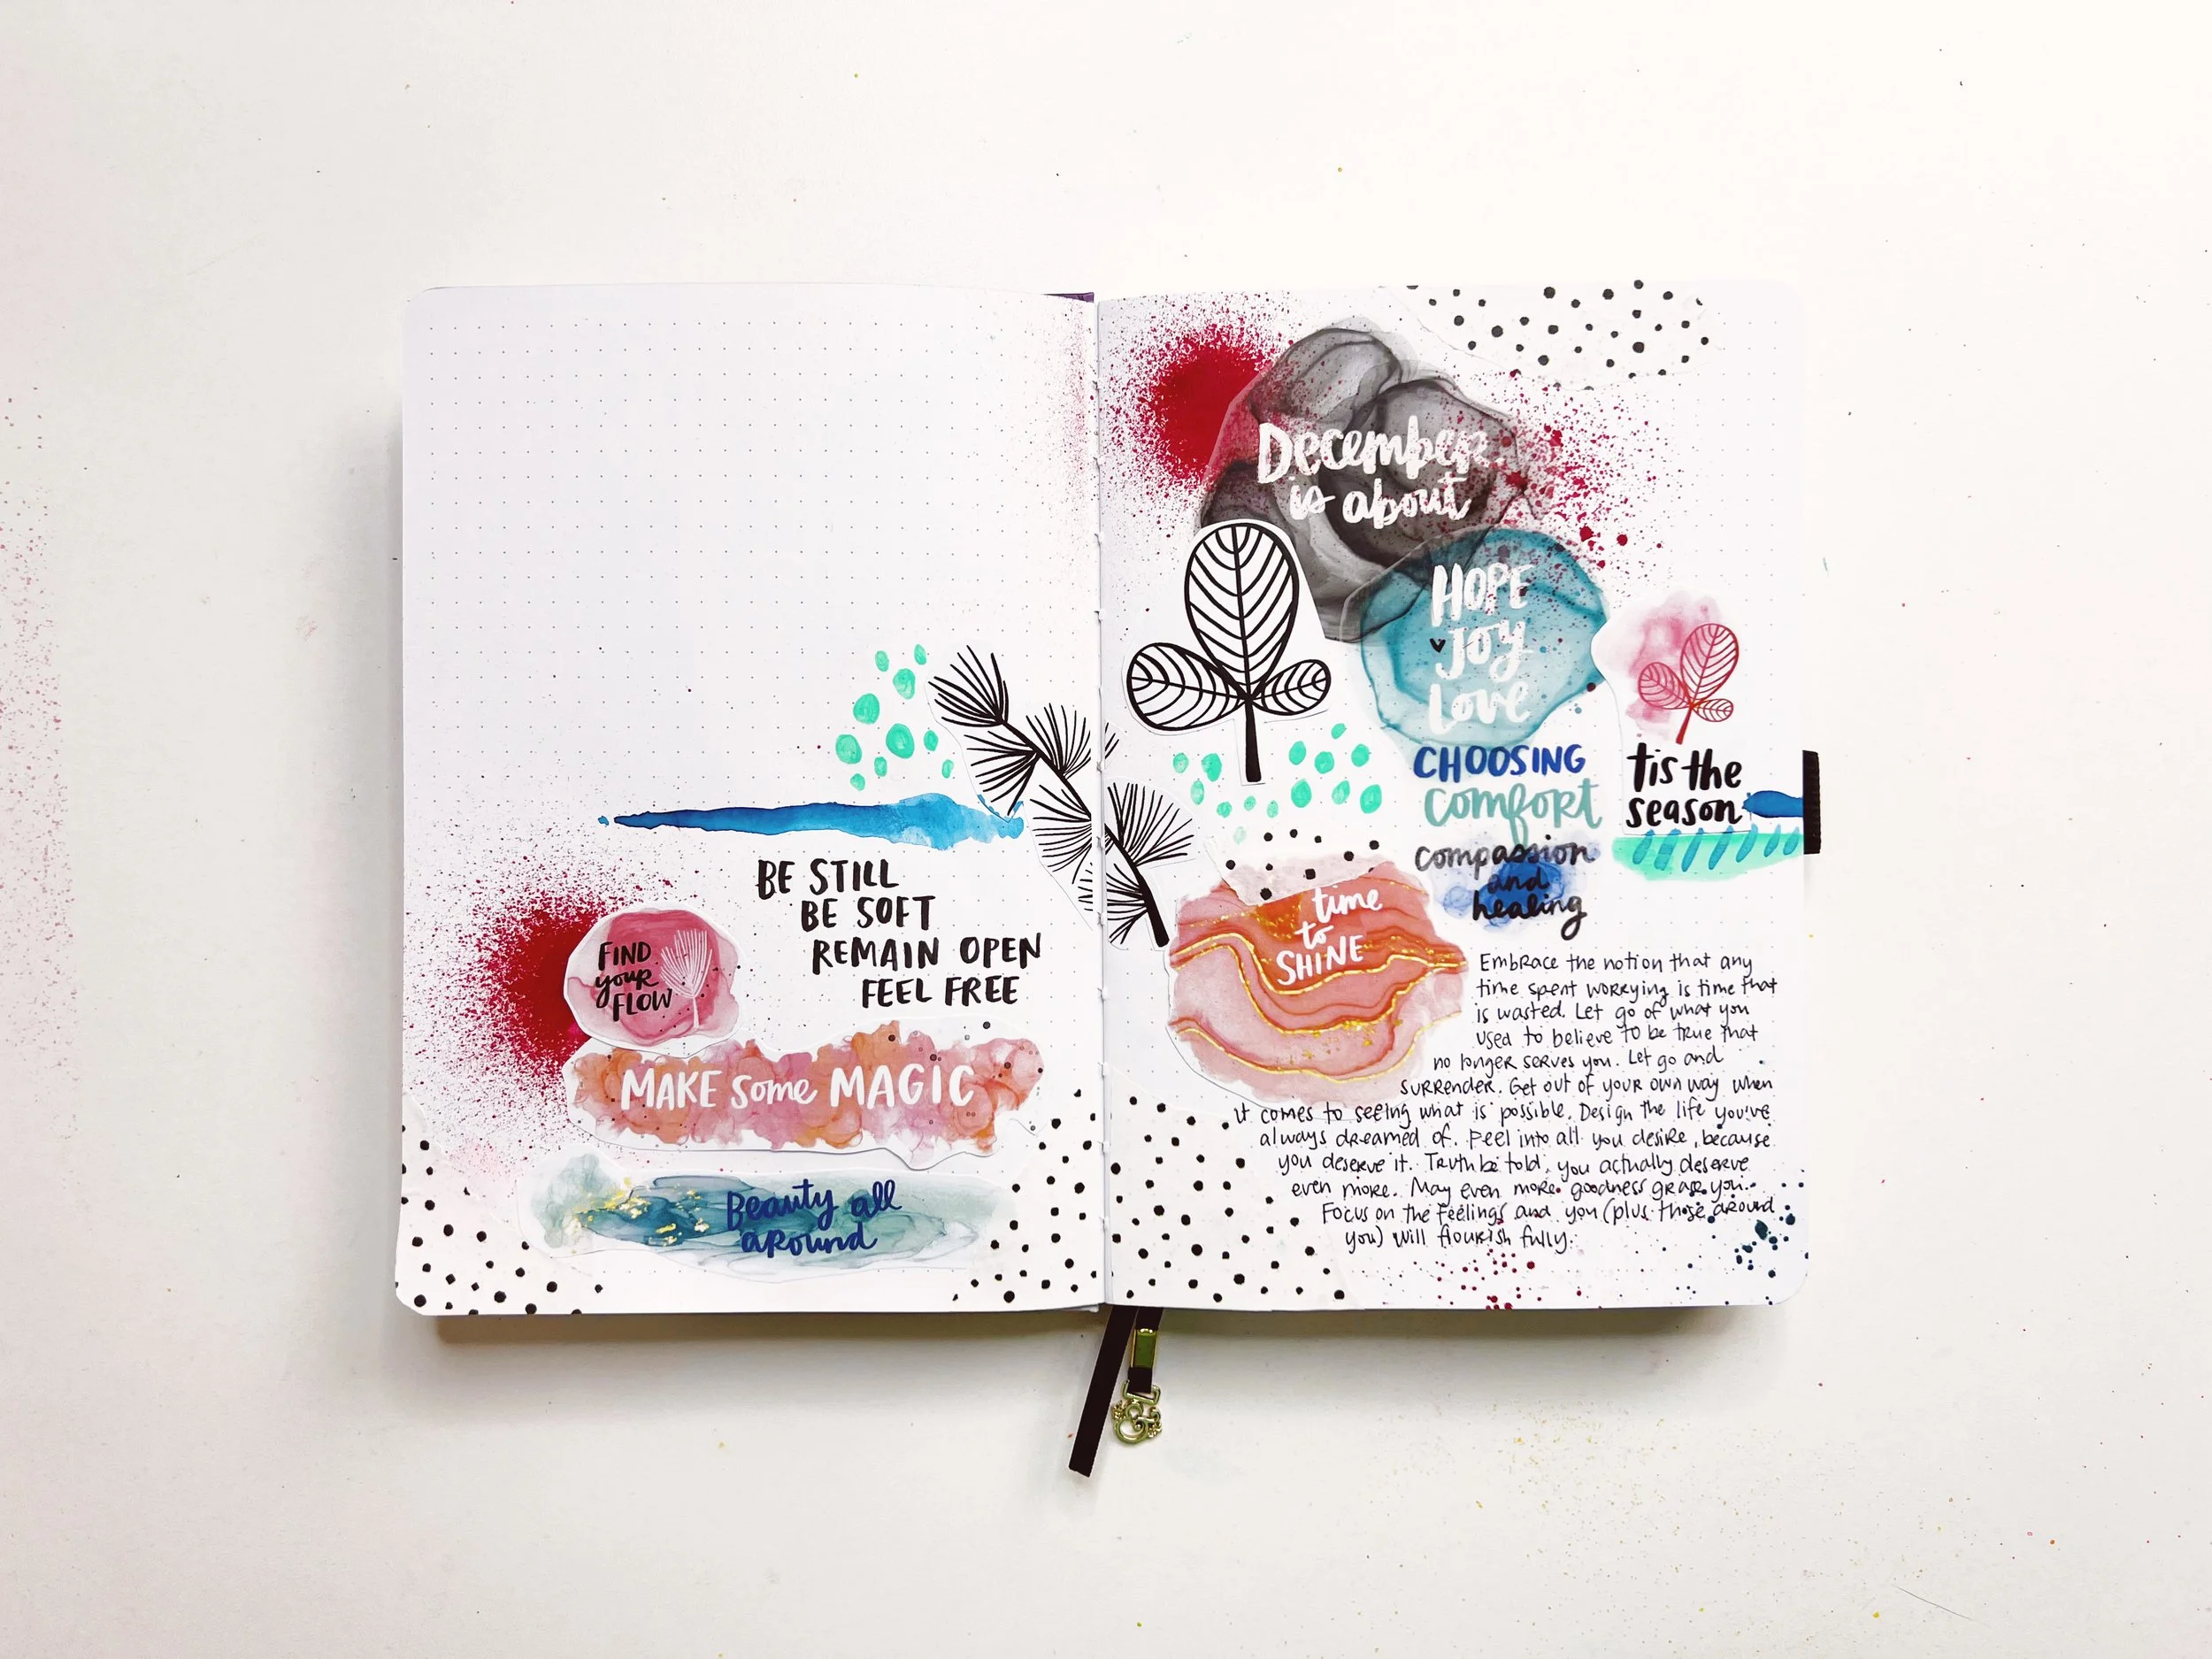 BE STILL
BE SOFT
REMAIN OPEN
FEEL FREE
FIND
your
FLOW
MAKE some MAGIC
Beauty all
around
December
is about
HOPE
Joy
Love
CHOOSING
comfort
compassion
and
healing
'tis the
season
time
to
SHINE
Embrace the notion that any
time spent worrying is time that
is wasted. Let go of what you
used to believe to be true that
no longer serves you. Let go and
surrender. Get out of your own way when
it comes to seeing what is possible. Design the life you've
always dreamed of. Feel into all you desire, because
you deserve it. Truth be told, you actually deserve
even more. May even more goodness grase you.
Focus on the feelings and you (plus those around
you) will flourish fully.